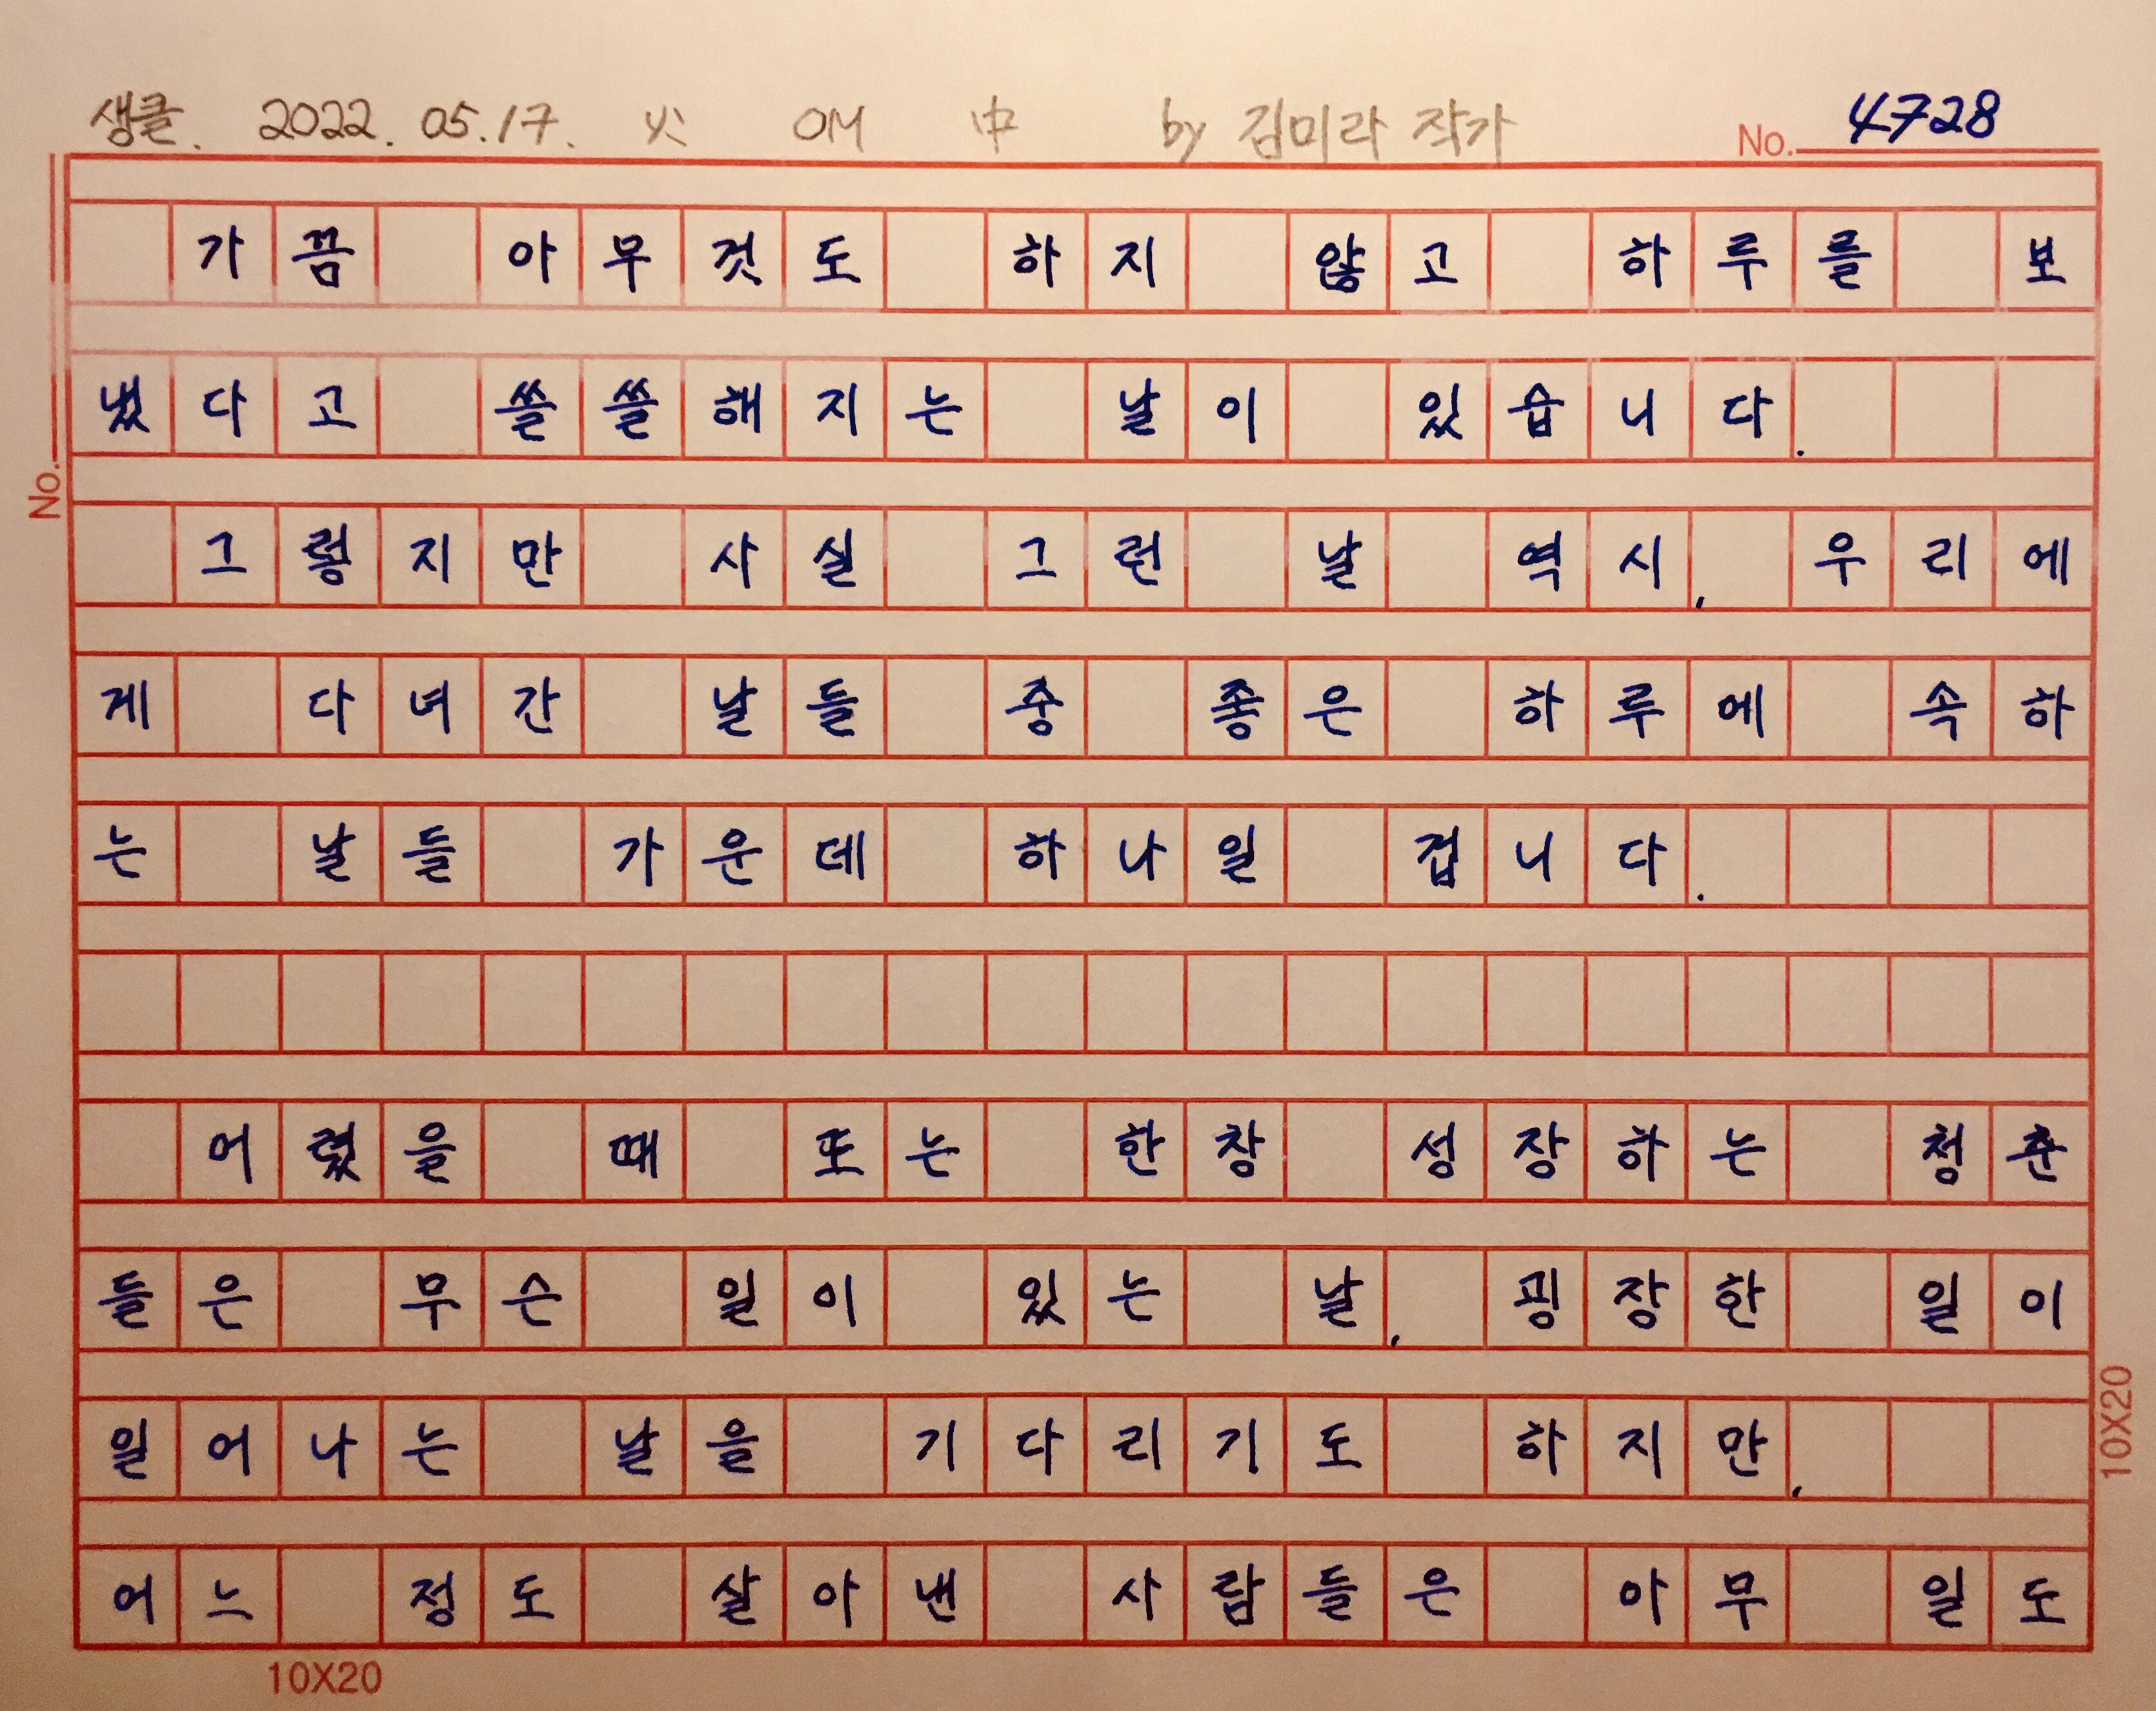 생클. 2022. 05. 17. 火 OM 中 by 김미라 작가 No. 4728
가끔 아무것도 하지 않고 하루를 보
냈다고 쓸쓸해지는 날이 있습니다.
그렇지만 사실 그런 날 역시, 우리에
No.
게 다녀간 날들 중 좋은 하루에 속하
는 날들 가운데 하나일 겁니다.
어렸을 때 또는 한창 성장하는 청춘
들은 무슨 일이 있는 날, 굉장한 일이
일어나는 날을 기다리기도 하지만,
10X20
어느 정도 살아낸 사람들은 아무 일도
10X20